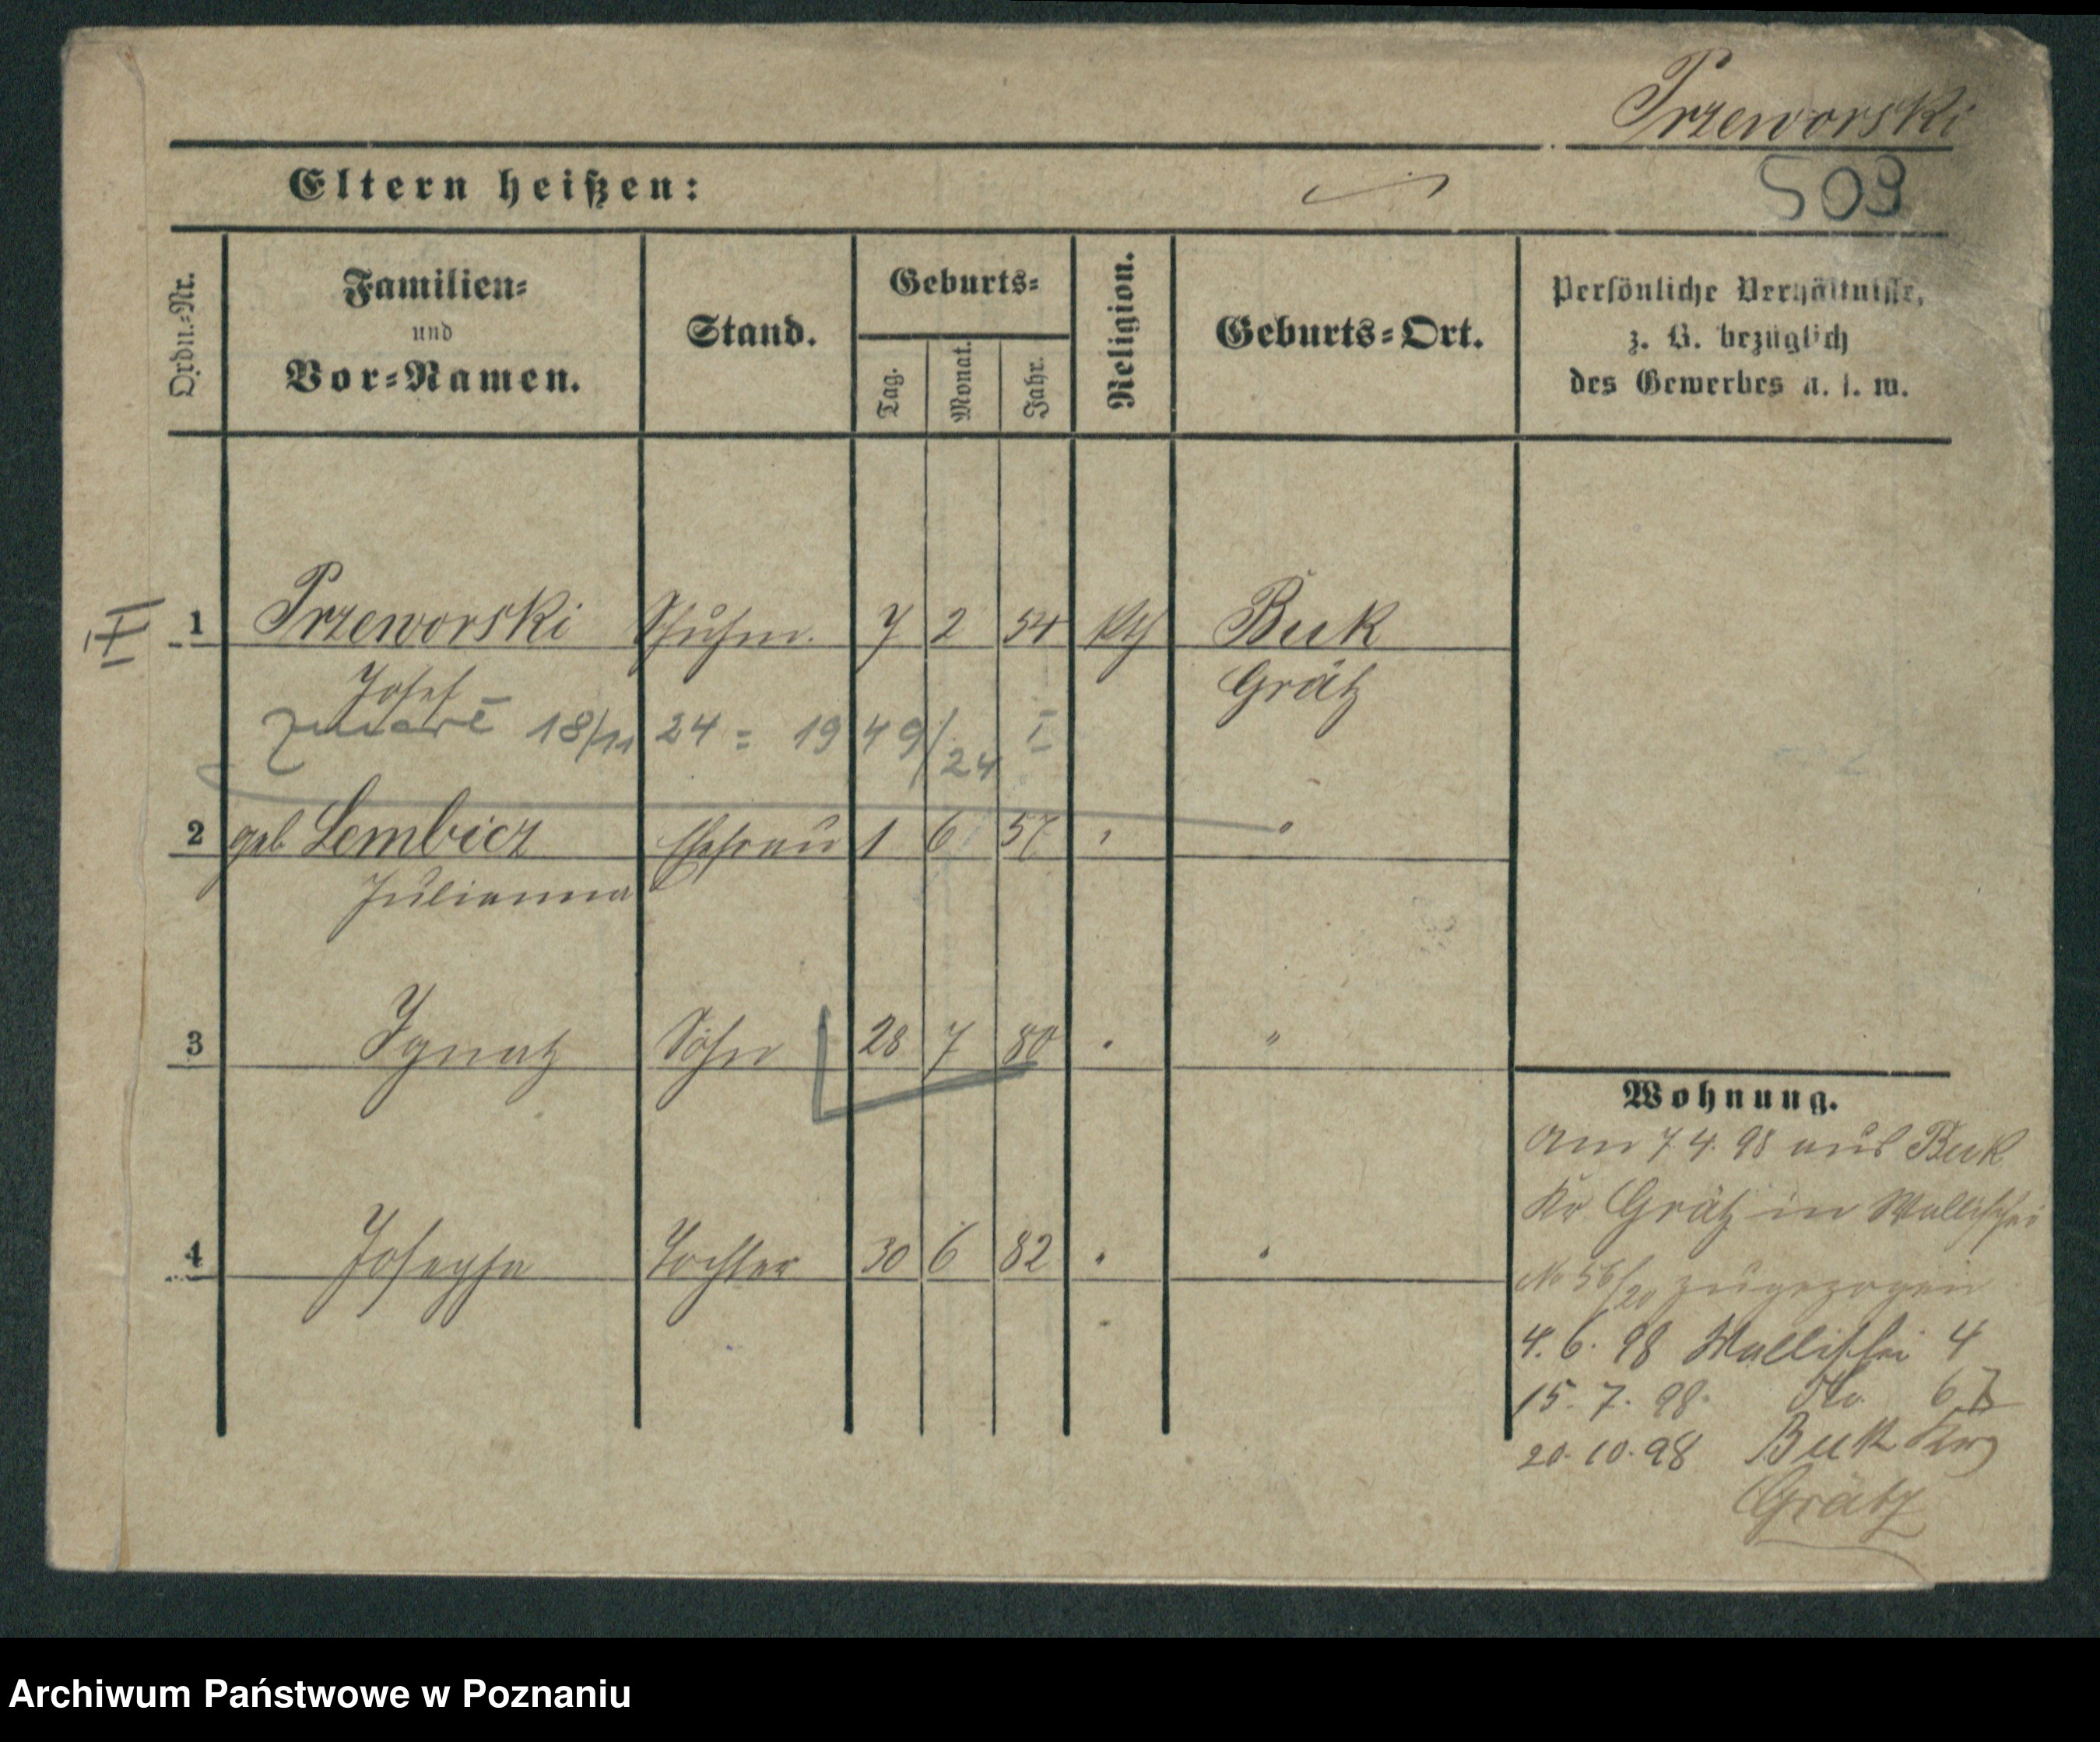 Przeworski
Eltern heißen:
509
Ordn.-Nr.
Familien-
und
Vor-Namen.
Stand.
Geburts-
Tag.
Monat.
Jahr.
Religion.
Geburts-Ort.
Persönliche Verhältnisse,
z. B. bezüglich
des Gewerbes u. s. w.
1 Przeworski Schuhm. 7 2 54 kth Buk
Josef Grätz
zmarł 18/11 24 = 1949/24 I
2 geb Lembicz Ehefrau 1 6 57 " "
Julianna
3 Ignatz Sohn 28 7 80 " "
4 Josepha Tochter 30 6 82 " "
Wohnung.
Am 7.4.98 aus Buk
Kr Grätz in Wallischei
No 56/20 zugezogen
4.6.98 Wallischei 4
15.7.98. 67
20.10.98 Buk Krs
Grätz
Archiwum Państwowe w Poznaniu